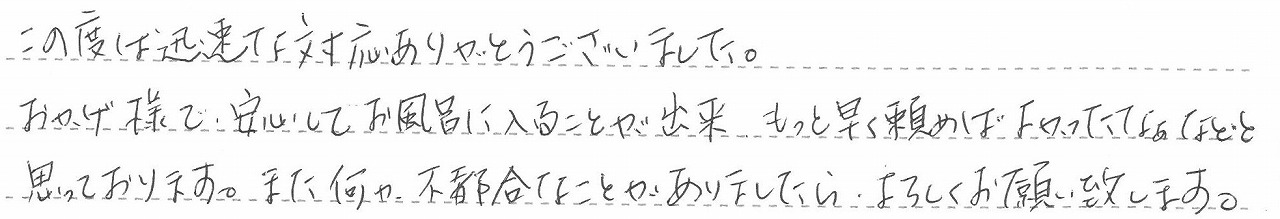 この度は迅速な対応ありがとうございました。
おかげ様で、安心してお風呂に入ることが出来、もっと早く頼めばよかったなぁなどと
思っております。また何か不都合なことがありましたら、よろしくお願い致します。